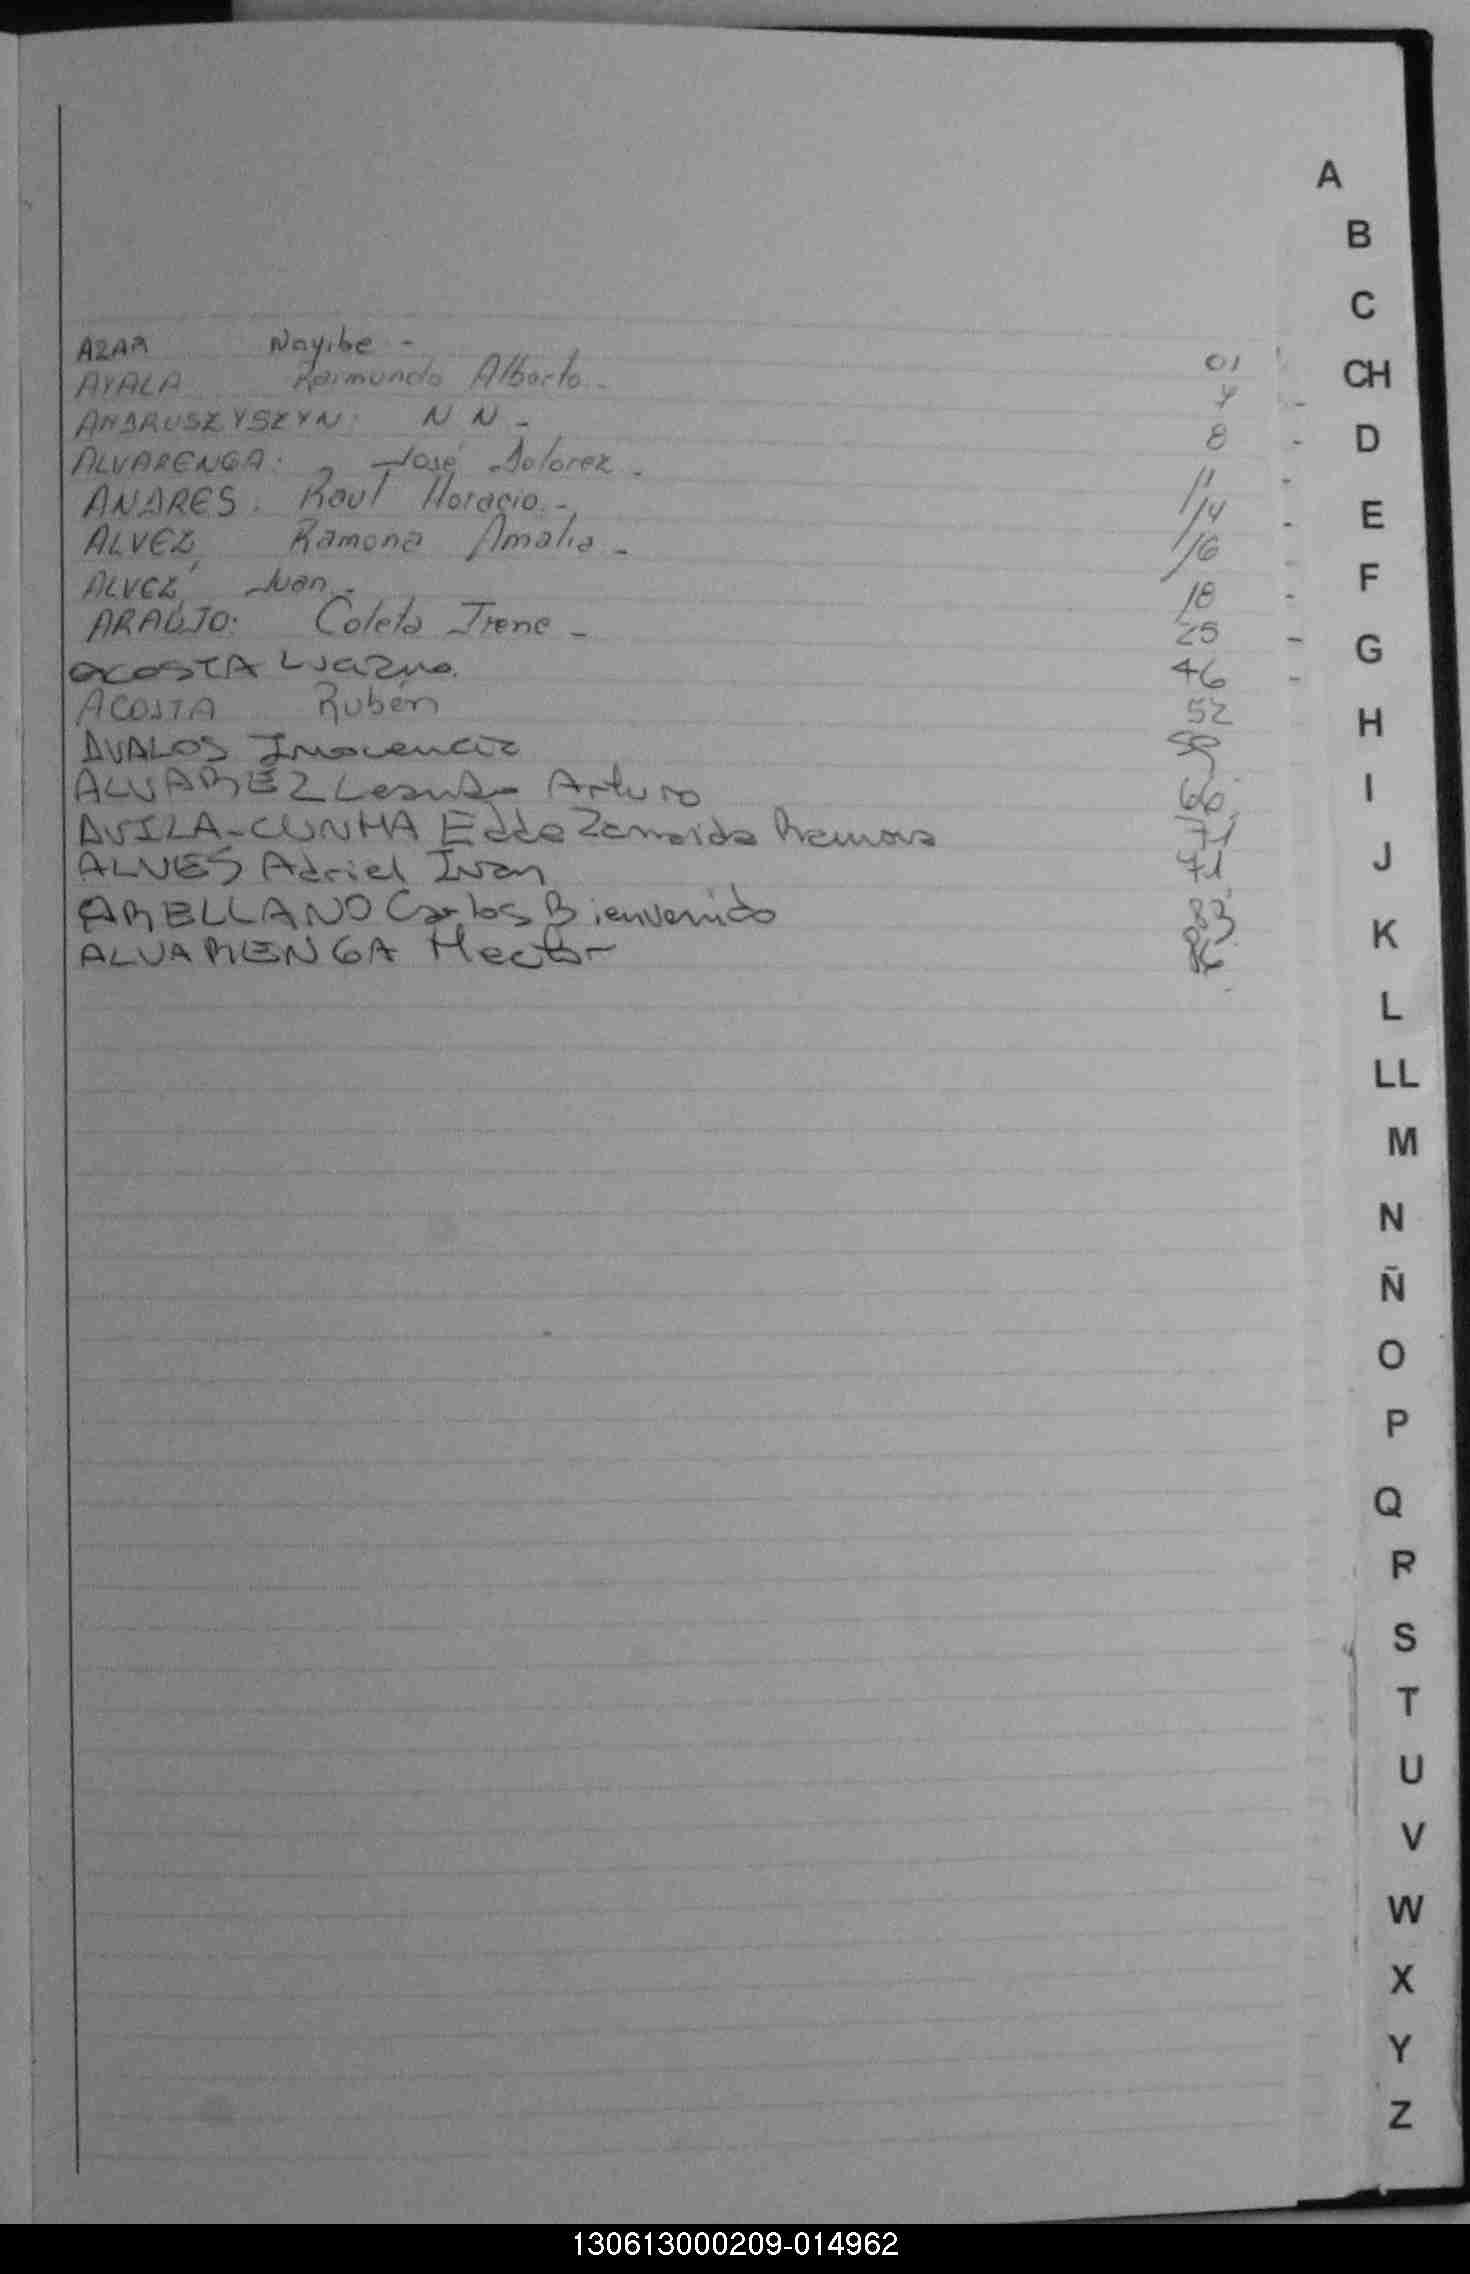 A
B
C
CH
D
E
F
G
H
I
J
K
L
LL
M
N
Ñ
O
P
Q
R
S
T
U
V
W
X
Y
Z
AZAR Nayibe - 01
AYALA Raimundo Alberto - 4
ANDRUSZYSZYN: N N - 8
ALVARENGA: José Dolorez - 11
ANDRES. Raul Horacio - 14
ALVEZ Ramona Amalia - 16
ALVEZ, Juan - 18
ARAUJO: Coleta Irene - 25
ACOSTA 46
ACOSTA Rubén 52
AVALOS Inocencia 59
ALVAREZ Leandro Arturo 66
AVILA-CUNHA Edda Zenaida Ramona 71
ALVES Adriel Ivan 71
ARELLANO Carlos Bienvenido 83
ALVARENGA Hector 86
130613000209-014962